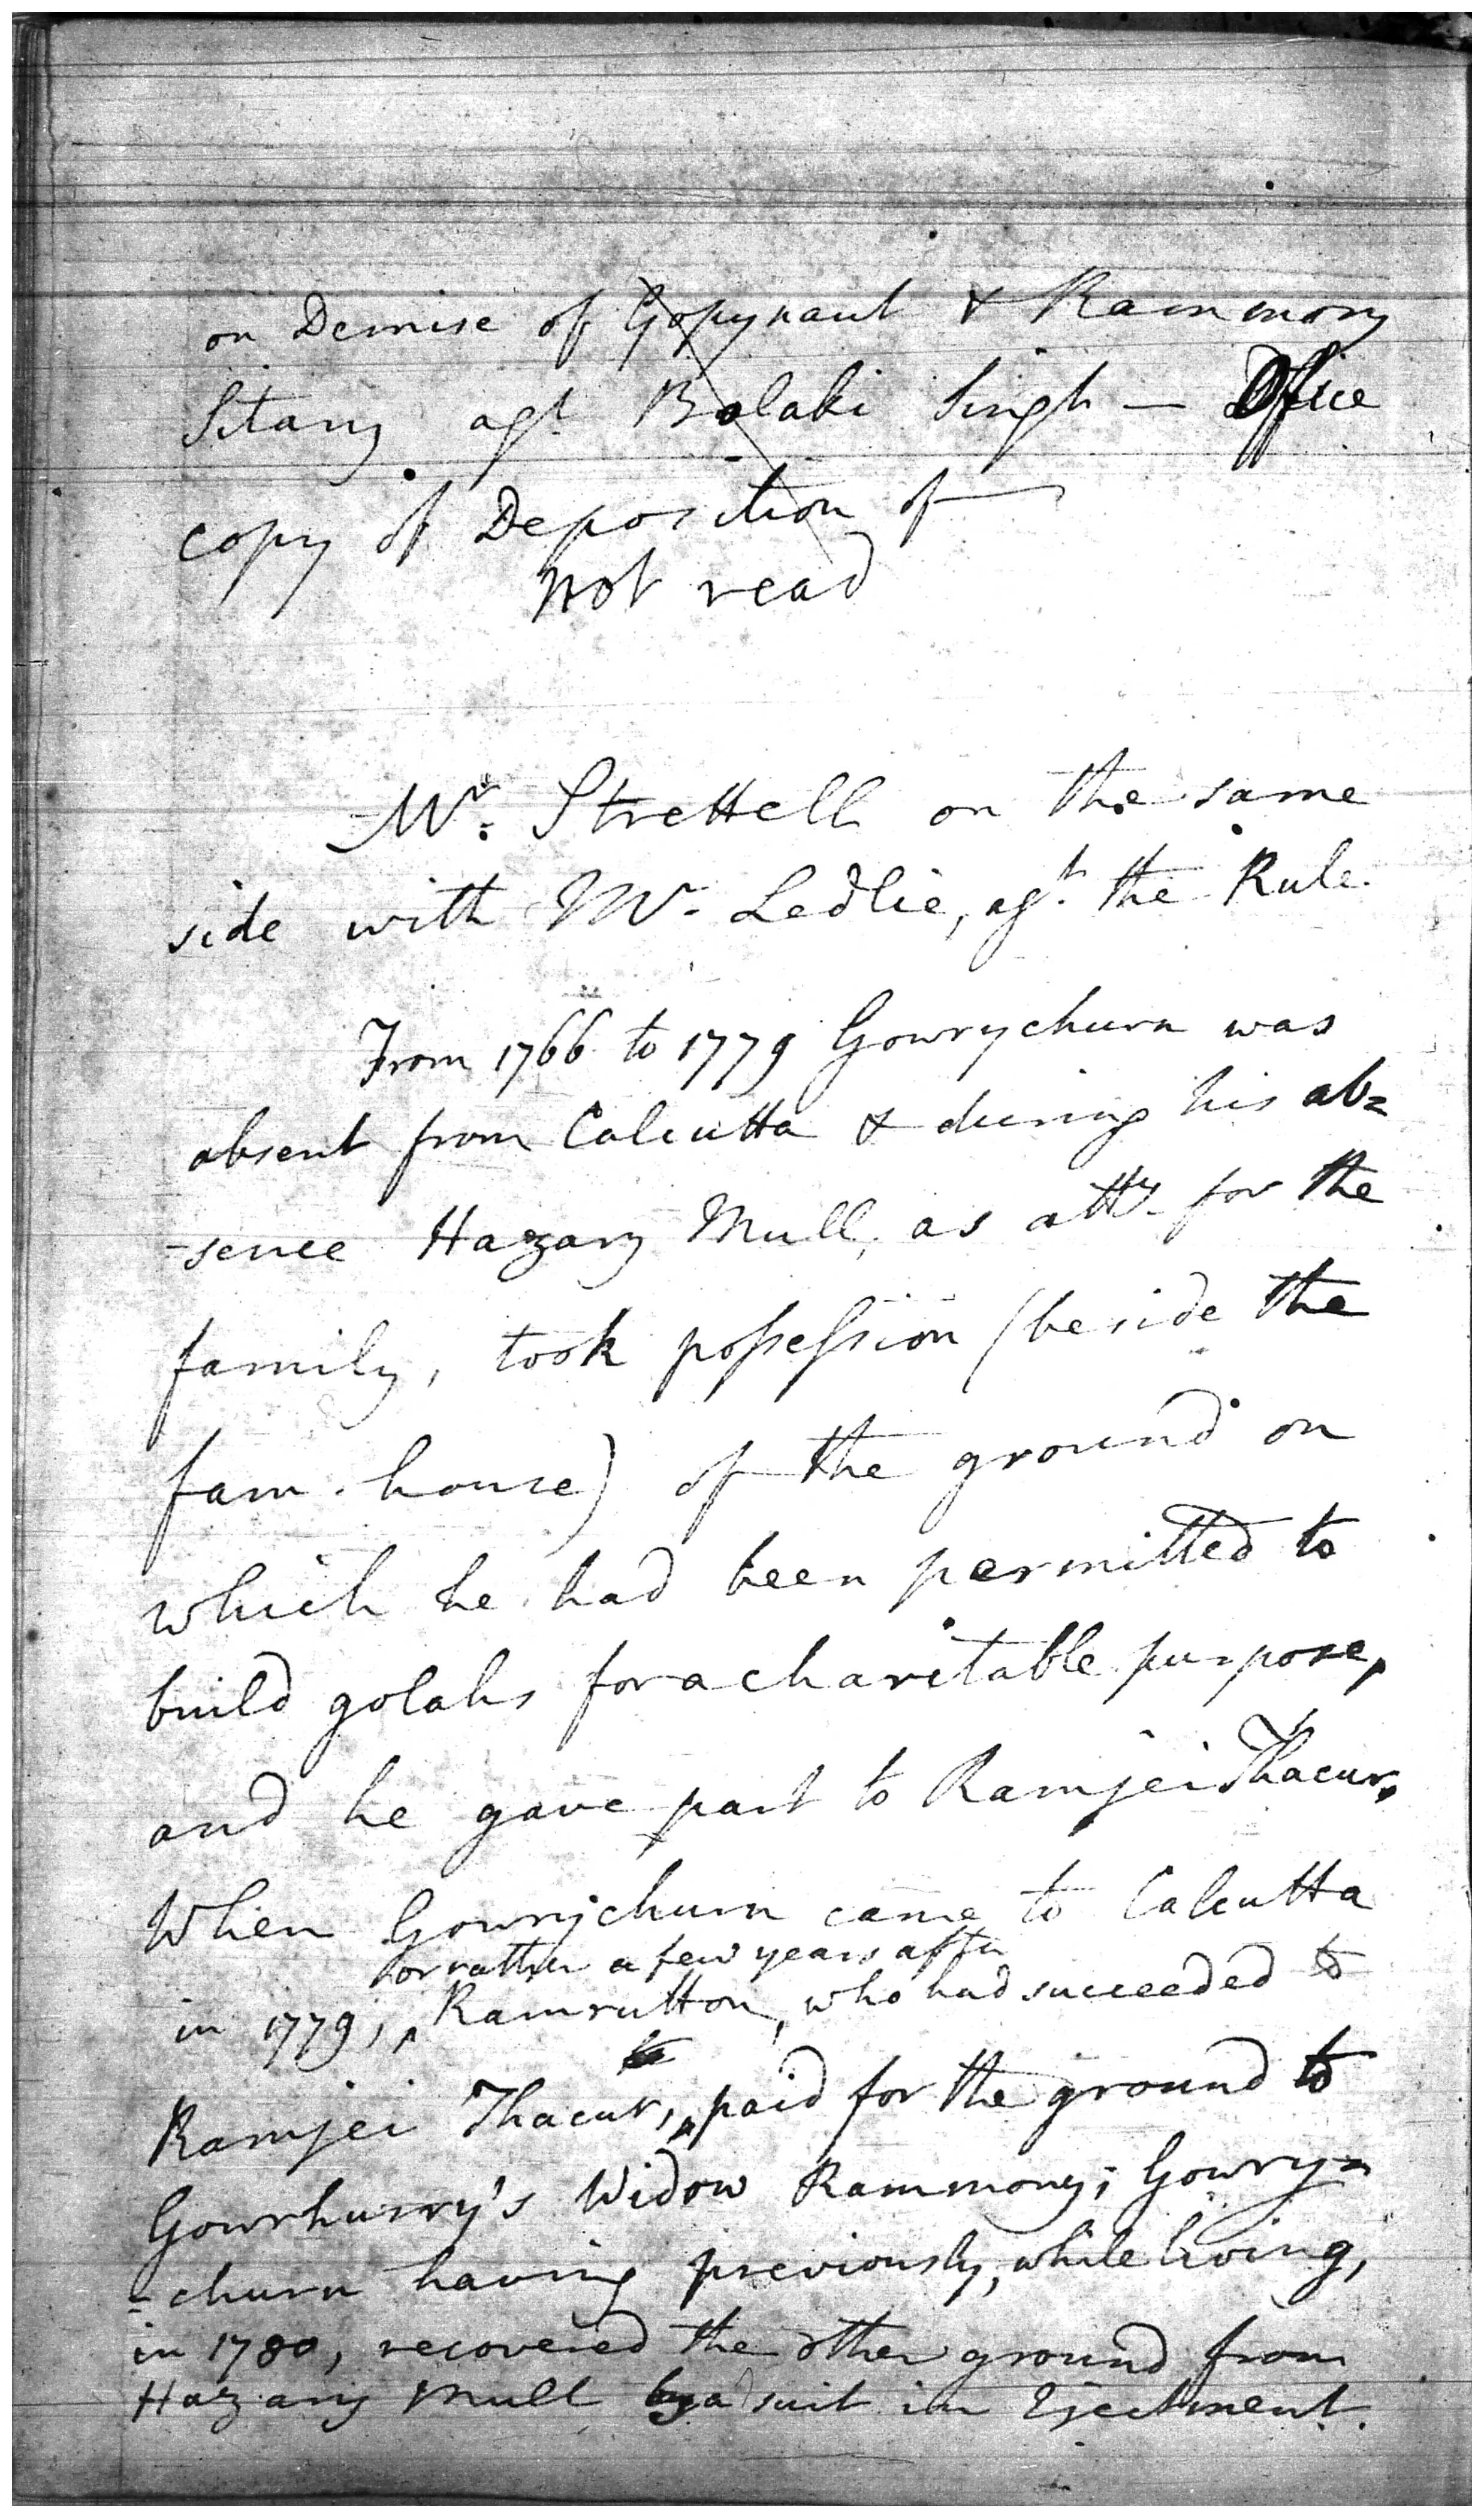 on Demise of Gopynaut & Rammony
Sitany agt Bolaki Singh — Office
copy of Deposition of
not read
Mr. Strettell on the same
side with Mr. Ledlie, agt. the Rule.
From 1766 to 1779 Gowrychurn was
absent from Calcutta & during his ab=
-sence Hazary Mull, as atty. for the
family, took possession (beside the
fam. house) of the ground on
which he had been permitted to
build golahs for a charitable purpose,
and he gave part to Ramjei Thacur,
When Gowrychurn came to Calcutta
or rather a few years after
in 1779, Ramrutton, who had succeeded to
Ramjei Thacur, paid for the ground to
Gowrhurry's Widow Rammony; Gowry=
-churn having previously, while living,
in 1780, recovered the other ground from
Hazary Mull by a suit in Ejectment.